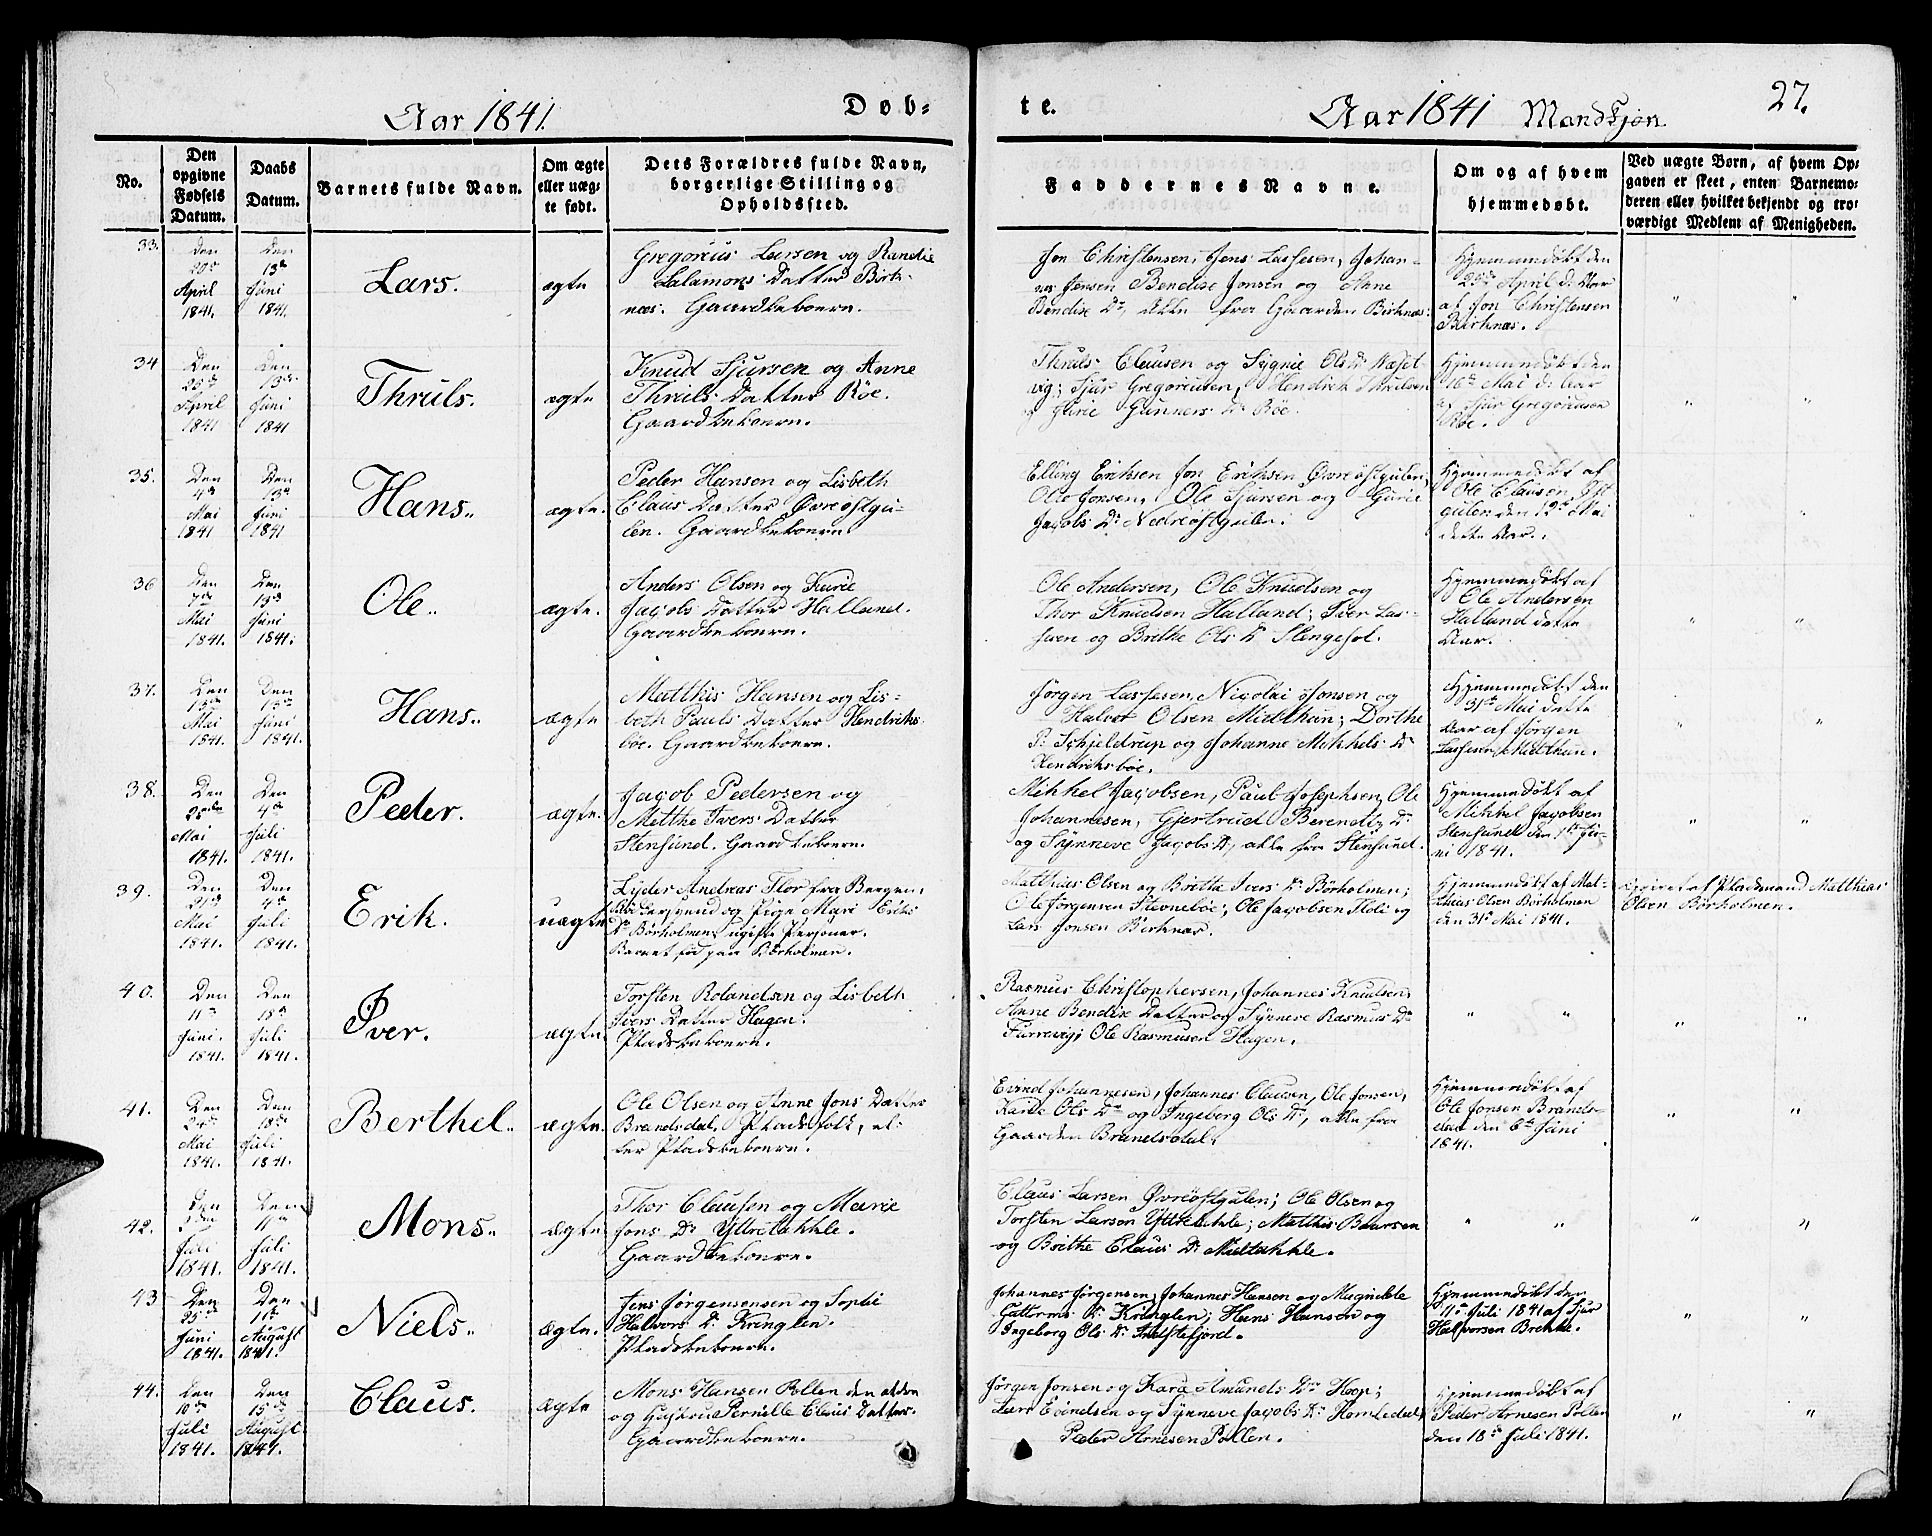 Aar 1841.
Døb=
te.
Aar 1841
Mandkjøn
27.
No.
Den
opgivne
Fødsels
Datum.
Daabs
Datum.
Barnets fulde Navn.
Om ægte
eller uæg-
te født.
Dets Forældres fulde Navn,
borgerlige Stilling og
Opholdssted.
Faddernes Navne.
Om og af hvem
hjemmedøbt.
Ved uægte Børn, af hvem Op-
gaven er skeet, enten Barnemo-
deren eller hvilket bekjendt og tro-
værdigt Medlem af Menigheden.
33.
Den
20de
April
1841.
Den
13de
Juni
1841.
Lars.
ægte
Gregorius Larsen og Randie
Salamons Datter Birk-
næs. Gaardbeboere.
Jon Christensen, Jens Lassesen, Johan-
nes Jensen Bendixe Jonsen og Anne
Bendixe Dr, alle fra Gaarden Birknæs.
Hjemmedøbt den
25de April d: Aar
af Jon Christensen
Birknæs.
" "
34
Den
25de
April
1841
Den
13de
Juni
1841
Thruls.
ægte
Knud Sjursen og Anne
Thruls Datter Røe.
Gaardbeboere.
Thruls Clausen og Sygnie Ols Dr
vig; Sjur Gregoriusen, Hendrik Thrulsen
og Gurie Gunners Dr Røe.
Hjemmedøbt den
16de Mai d: Aar
af Sjur Gregoriusen
Røe.
" "
35.
Den
4de
Mai
1841
Den
13de
Juni
1841
Hans.
ægte.
Peder Hansen og Lisbeth
Claus Datter Øvreøstgu-
len. Gaardbeboere
Elling Eriksen Jon Eriksen Øvreøstgulen,
Ole Jonsen, Ole Sjursen og Gurie
Jacobs Dr Nedreøstgulen.
Hjemmedøbt af
Ole Clausen Øst
gulen den 12te Mai
dette Aar.
" "
36
Den
7de
Mai
1841.
Den
13de
Juni
1841.
Ole.
ægte.
Anders Olsen og Kurie
Jacobs Datter Halland.
Gaardbeboere.
Ole Andersen, Ole Knudsen og
Thor Knudsen Halland; Iver Las-
sesen og Brithe Ols Dr Slengesol.
Hjemmedøbt af
Ole Andersen
Halland dette
Aar.
" "
37.
Den
13de
Mai
1841.
Den
13de
Juni
1841.
Hans.
ægte
Matthis Hansen og Lis-
beth Pauls Datter Hendriks-
bøe. Gaardbeboere.
Jørgen Lassesen, Nicolai Jonsen og
Halvor Olsen Midthun; Dorthe
P. Schjeldrup og Johanne Mikkels Dr
Hendriksbøe.
Hjemmedøbt den
31te Mai dette
Aar af Jørgen
Lassesen Midthun.
" "
38.
Den
Mai
1841.
Den
4de
Juli
1841.
Peder.
ægte.
Jacob Pedersen og
Metthe Ivers Datter
Stensund. Gaardbeboere.
Mikkel Jacobsen, Paul Josephsen, Ole
Johannesen, Gjertrud Berendts Dr
og Synneve Jacobs Dr, alle fra Stensund.
Hjemmedøbt af
Mikkel Jacobsen
Stensund den 1te Ju-
ni 1841.
" "
39.
Den
21de
Mai
1841.
Den
4de
Juli
1841.
Erik.
uægte
Lyder Andreas Flor fra Bergen,
og Pige Mari Eriks
Dr Børholmen, ugifte Personer.
Barnet fød paa Børholmen.
Matthias Olsen og Brithe Ivers Dr Børholmen;
Ole Jørgensen Stevnebøe; Ole Jacobsen Floli og
Lars Jonsen Birknæs.
Hjemmedøbt af Mat-
thias Olsen Børholmen
den 31te Mai 1841.
Opgivet af Pladsmand Matthias
Olsen Børholmen.
40.
Den
11te
Juni.
1841.
Den
18de
Juli
1841.
Iver.
ægte.
Torsten Rolandsen og Lisbeth
Ivers Datter Hagen.
Pladsbeboere.
Rasmus Christophersen, Johannes Knudsen,
Anne Bendixe Datter og Synneve Rasmus Dr
Furrevig; Ole Rasmusen Hagen.
" "
" "
41.
Den
24de
Mai
1841.
Den
18de
Juli
1841.
Berthel.
ægte.
Ole Olsen og Anne Jons Datter
Brandsdal, Pladsfolk, el-
ler Pladsbeboere.
Evind Johannesen, Johannes Clausen, Ole Jonsen,
Karie Ols Dr og Ingeborg Ols Dr, alle fra
Gaarden Brandsdal.
Hjemmedøbt af
Ole Jonsen Brands-
dal den 6te Juni
1841.
" "
42.
Den
Juli
1841.
Den
11te
Juli
1841.
Mons.
ægte.
Thor Clausen og Marie
Jons Dr Yttretakkle.
Gaardbeboere.
Claus Larsen Øvreøstgulen; Ole Olsen og
Torsten Larsen Yttretakle; Matthis Baarsen
og Brithe Claus Dr Midtakkle.
" "
" "
43
Den
25de
Juni
1841.
Den
1ste
August
1841.
Niels.
ægte.
Jens Jørgensensen og Sophie
Halvors Dr Kringlen.
Pladsbeboere.
Johannes Jørgensen, Johannes Hansen og Magnilde
Guttorms Dr Kringlen; Hans Hansen og
Ingeborg Ols Dr
Hjemmedøbt den
11te Juli 1841 af Sjur
Halvorsen Brekke.
" "
44.
Den
10de
Juli
1841.
Den
15de
August
1841.
Claus.
ægte
Mons Hansen Pollen den ældre
og Hustru Pernille Claus Datter.
Gaardbeboere.
Jørgen Jonsen og Kara Amunds Dr Hoop;
Lars Evindsen og Synneve Jacobs Dr Homledal,
Peder Arnesen Pollen.
Hjemmedøbt af
Peder Arnesen Pollen
den 18de Juli 1841.
" "